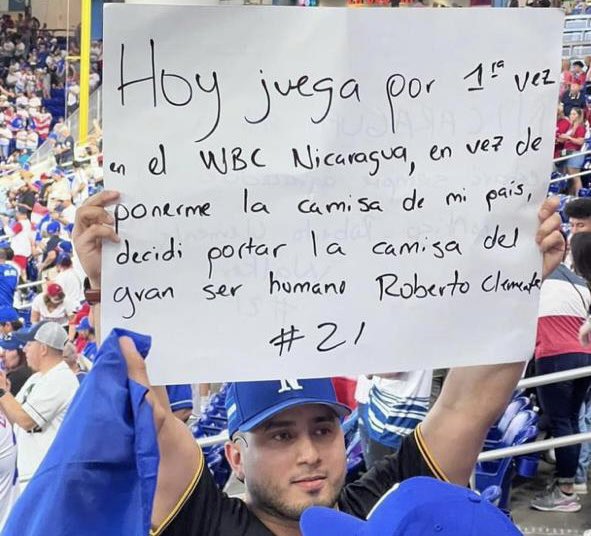 Hoy juega por 1ra vez
en el WBC Nicaragua, en vez de
ponerme la camisa de mi país,
decidi portar la camisa del
gran ser humano Roberto Clemente
#21
N